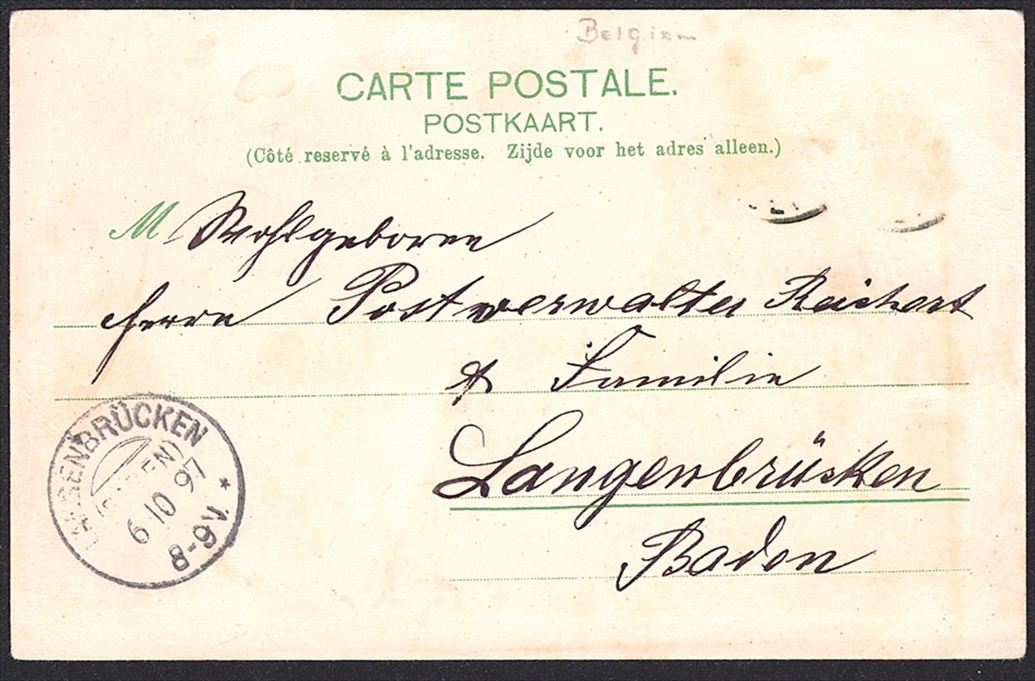 Belgien
CARTE POSTALE.
POSTKAART.
(Côté reservé à l'adresse. Zijde voor het adres alleen.)
M Wohlgeboren
Herrn Postverwalter Reichert
& Familie
Langenbrücken
Baden
LANGENBRÜCKEN
(BADEN)
6 10 97
* V.6-8